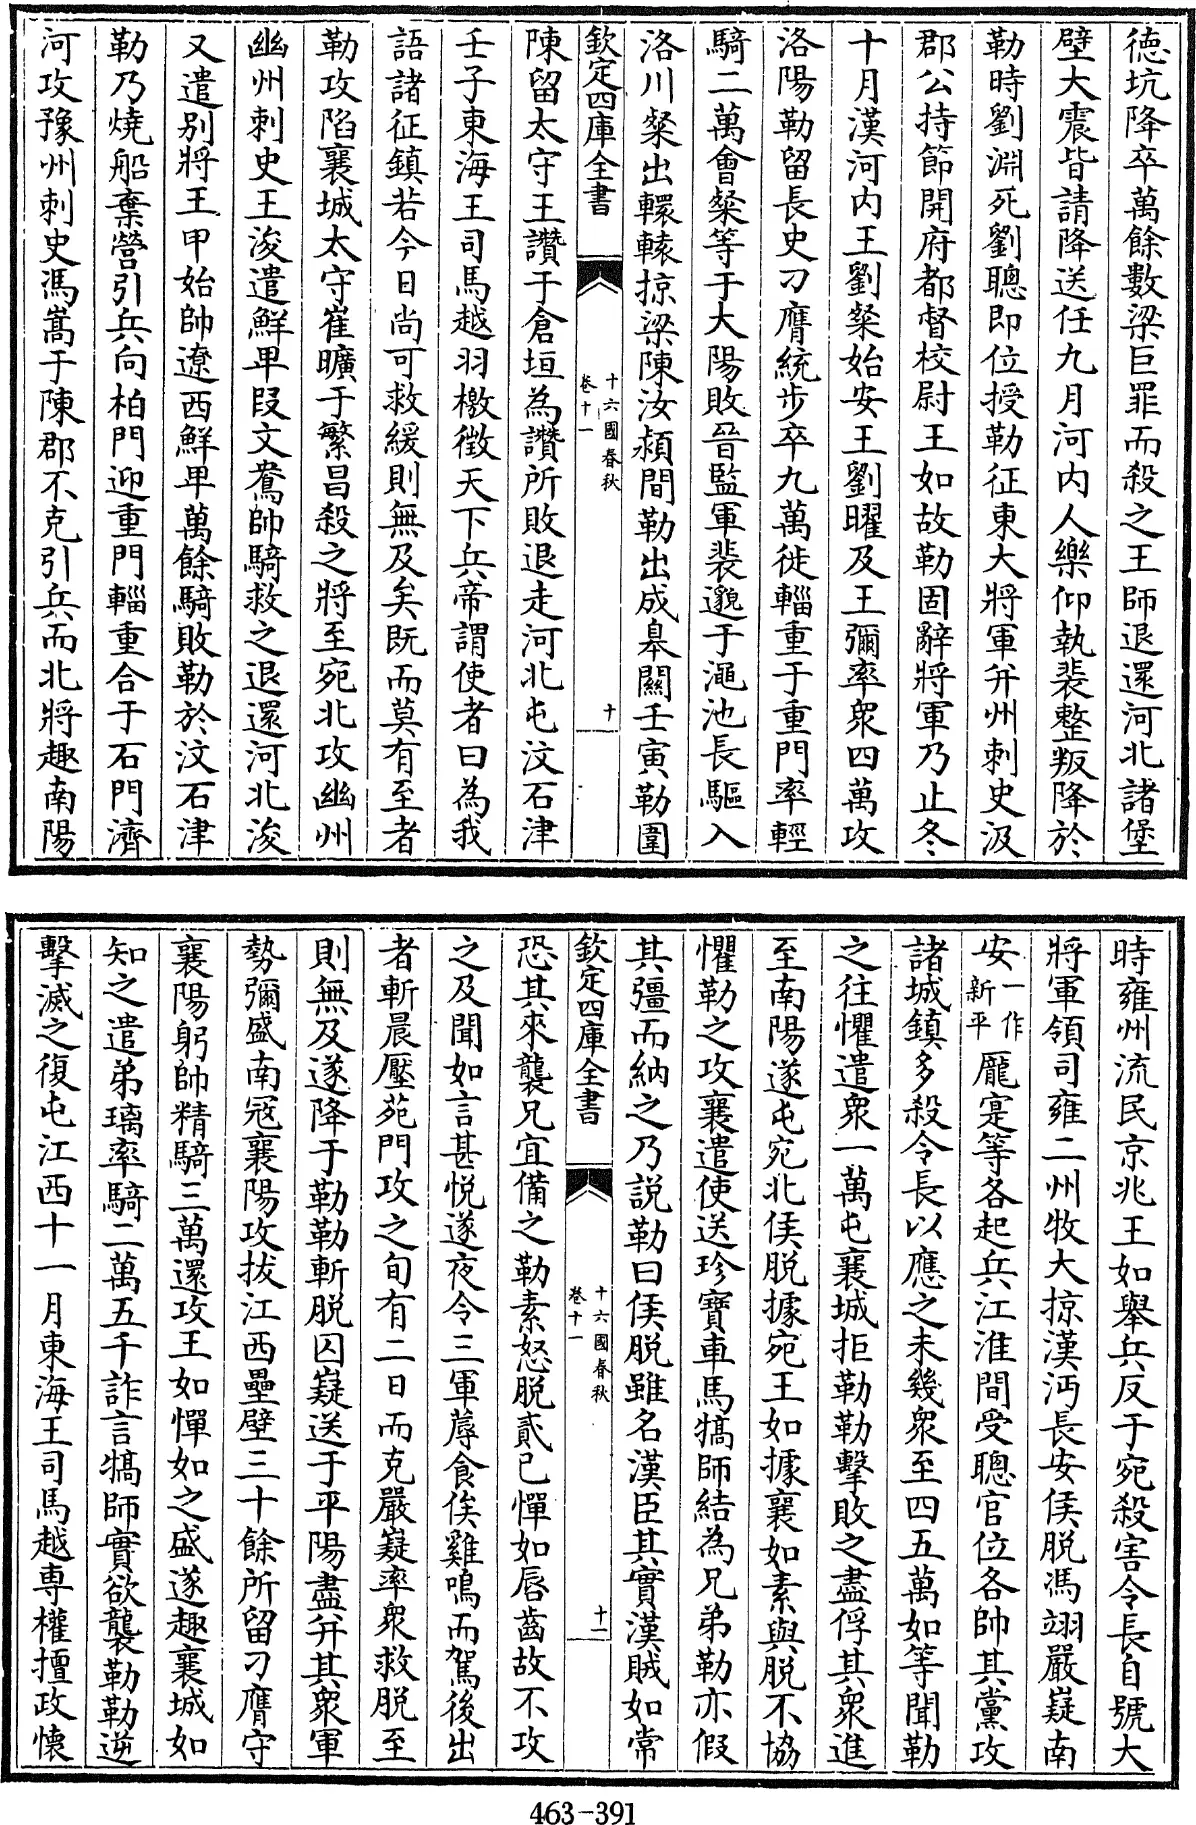 德坑降卒萬餘數梁巨罪而殺之王師退還河北諸堡
壁大震皆請降送任九月河内人樂仰執裴整叛降於
勒時劉淵死劉聰即位授勒征東大將軍并州刺史汲
郡公持節開府都督校尉王如故勒固辭將軍乃止冬
十月漢河内王劉粲始安王劉曜及王彌率衆四萬攻
洛陽勒留長史刁膺統步卒九萬徙輜重于重門率輕
騎二萬會粲等于大陽敗晉監軍裴邈于澠池長驅入
洛川粲出轘轅掠梁陳汝潁間勒出成皋關壬寅勒圍
欽定四庫全書
十六國春秋
卷十一
十
陳留太守王讚于倉垣為讚所敗退走河北屯汶石津
壬子東海王司馬越羽檄徵天下兵帝謂使者曰為我
語諸征鎮若今日尚可救緩則無及矣既而莫有至者
勒攻陷襄城太守崔曠于繁昌殺之將至宛北攻幽州
幽州刺史王浚遣鮮卑段文鴦帥騎救之退還河北浚
又遣别將王甲始帥遼西鮮卑萬餘騎敗勒於汶石津
勒乃燒船棄營引兵向柏門迎重門輜重合于石門濟
河攻豫州刺史馮嵩于陳郡不克引兵而北將趣南陽
時雍州流民京兆王如舉兵反于宛殺害令長自號大
將軍領司雍二州牧大掠漢沔長安侯脱馮翊嚴嶷南
安一作新平龎寔等各起兵江淮間受聰官位各帥其黨攻
諸城鎮多殺令長以應之未幾衆至四五萬如等聞勒
之往懼遣衆一萬屯襄城拒勒勒擊敗之盡俘其衆進
至南陽遂屯宛北侯脱據宛王如據襄如素與脱不協
懼勒之攻襄遣使送珍寶車馬犒師結為兄弟勒亦假
其彊而納之乃説勒曰侯脱雖名漢臣其實漢賊如常
欽定四庫全書
十六國春秋
卷十一
十一
恐其來襲兄宜備之勒素怒脱貳已憚如唇齒故不攻
之及聞如言甚悦遂夜令三軍蓐食俟雞鳴而駕後出
者斬晨壓苑門攻之旬有二日而克嚴嶷率衆救脱至
則無及遂降于勒勒斬脱囚嶷送于平陽盡并其衆軍
勢彌盛南冦襄陽攻拔江西壘壁三十餘所留刁膺守
襄陽躬帥精騎三萬還攻王如憚如之盛遂趣襄城如
知之遣弟璃率騎二萬五千詐言犒師實欲襲勒勒逆
擊滅之復屯江西十一月東海王司馬越専權擅政懐
463-391